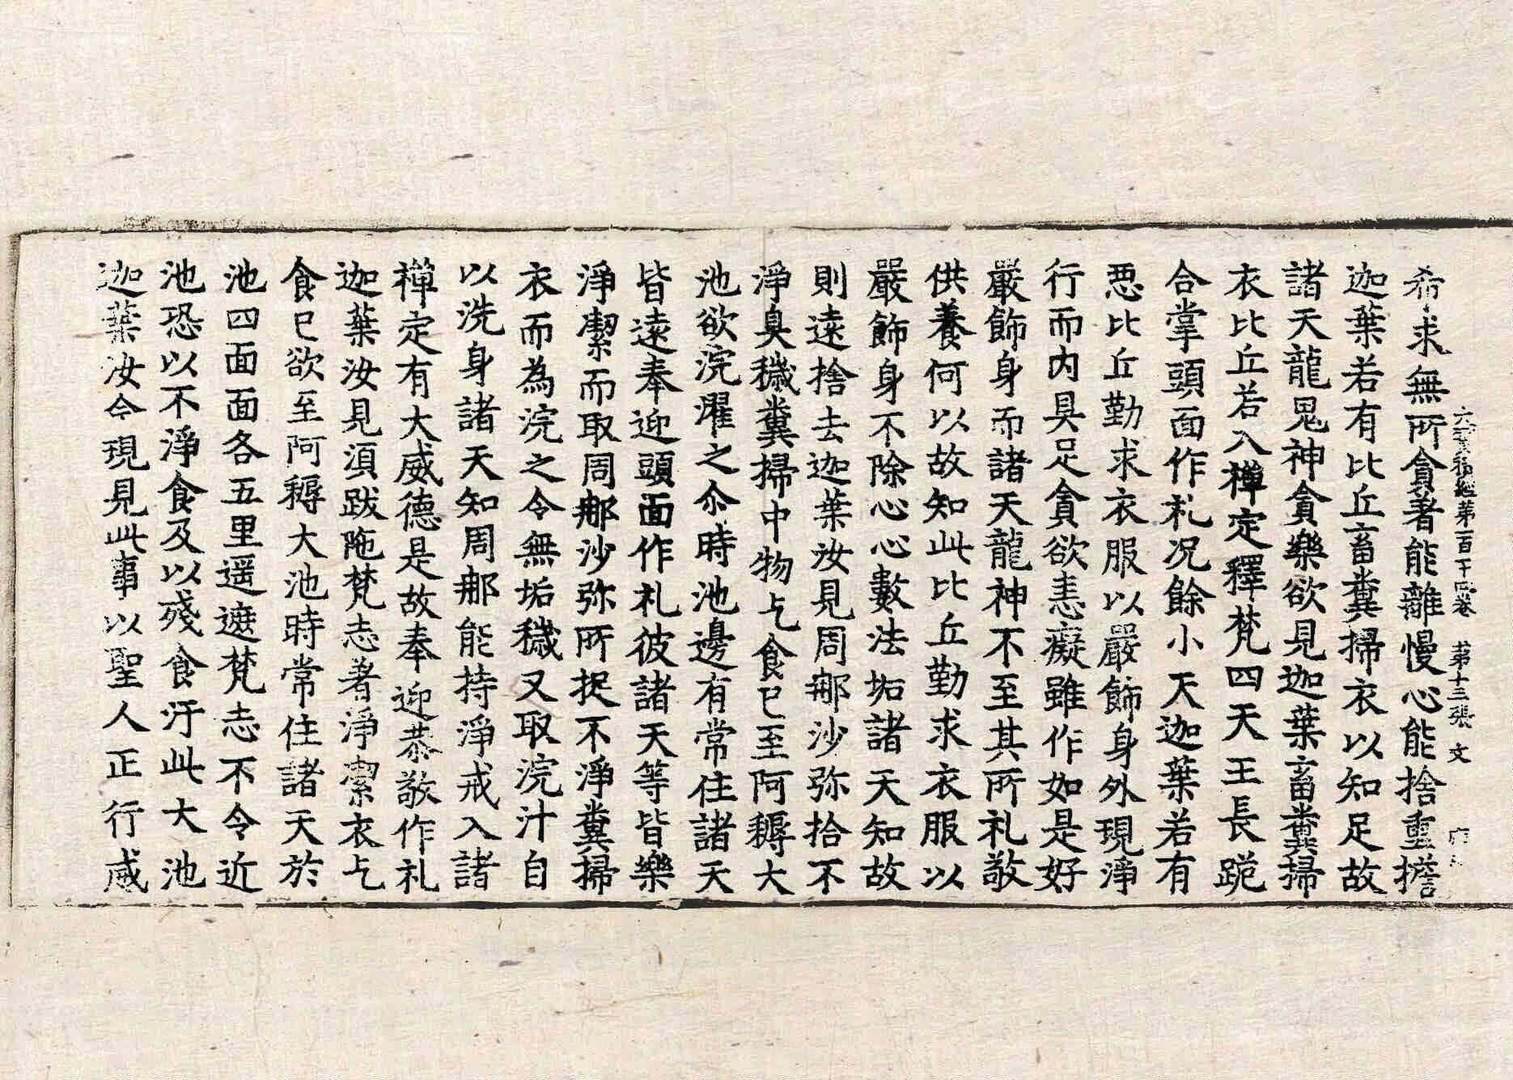 大寶積經第百十四卷 第十三張 文
希求無所貪著能離慢心能捨重擔
迦葉若有比丘畜糞掃衣以知足故
諸天龍鬼神貪樂欲見迦葉畜糞掃
衣比丘若入禅定釋梵四天王長跪
合掌頭面作礼况餘小天迦葉若有
惡比丘勤求衣服以嚴飾身外現淨
行而內具足貪欲恚癡雖作如是好
嚴飾身而諸天龍神不至其所礼敬
供養何以故知此比丘勤求衣服以
嚴飾身不除心心數法垢諸天知故
則遠捨去迦葉汝見周那沙弥拾不
淨臭穢糞掃中物乞食已至阿耨大
池欲浣濯之尒時池邊有常住諸天
皆遠奉迎頭面作礼彼諸天等皆樂
淨潔而取周那沙弥所捉不淨糞掃
衣而為浣之令無垢穢又取浣汁自
以洗身諸天知周那能持淨戒入諸
禅定有大威德是故奉迎恭敬作礼
迦葉汝見須跋陁梵志著淨潔衣乞
食已欲至阿耨大池時常住諸天於
池四面面各五里遥遮梵志不令近
池恐以不淨食及以殘食汙此大池
迦葉汝今現見此事以聖人正行威